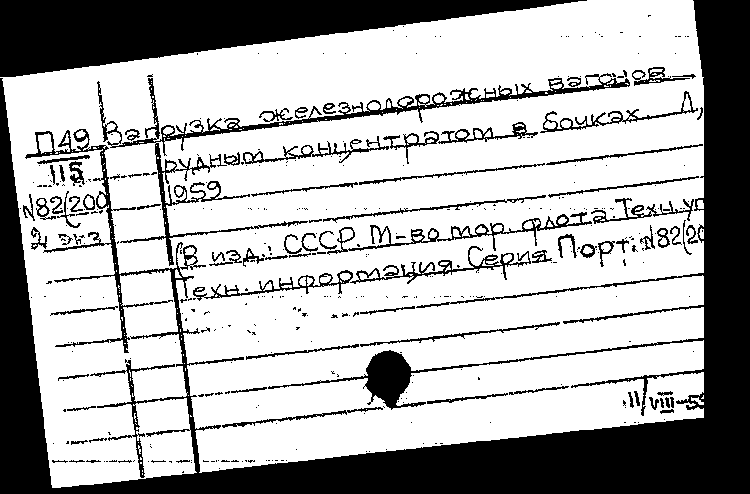 П49 Загрузка железнодорожных вагонов
115 рудным концентратом в бочках. Л,
№82(200 1959
2 экз
(В изд.: СССР. М-во мор. флота. Техн. уп
Техн. информация. Серия Порт. №82(20
11/VIII-59